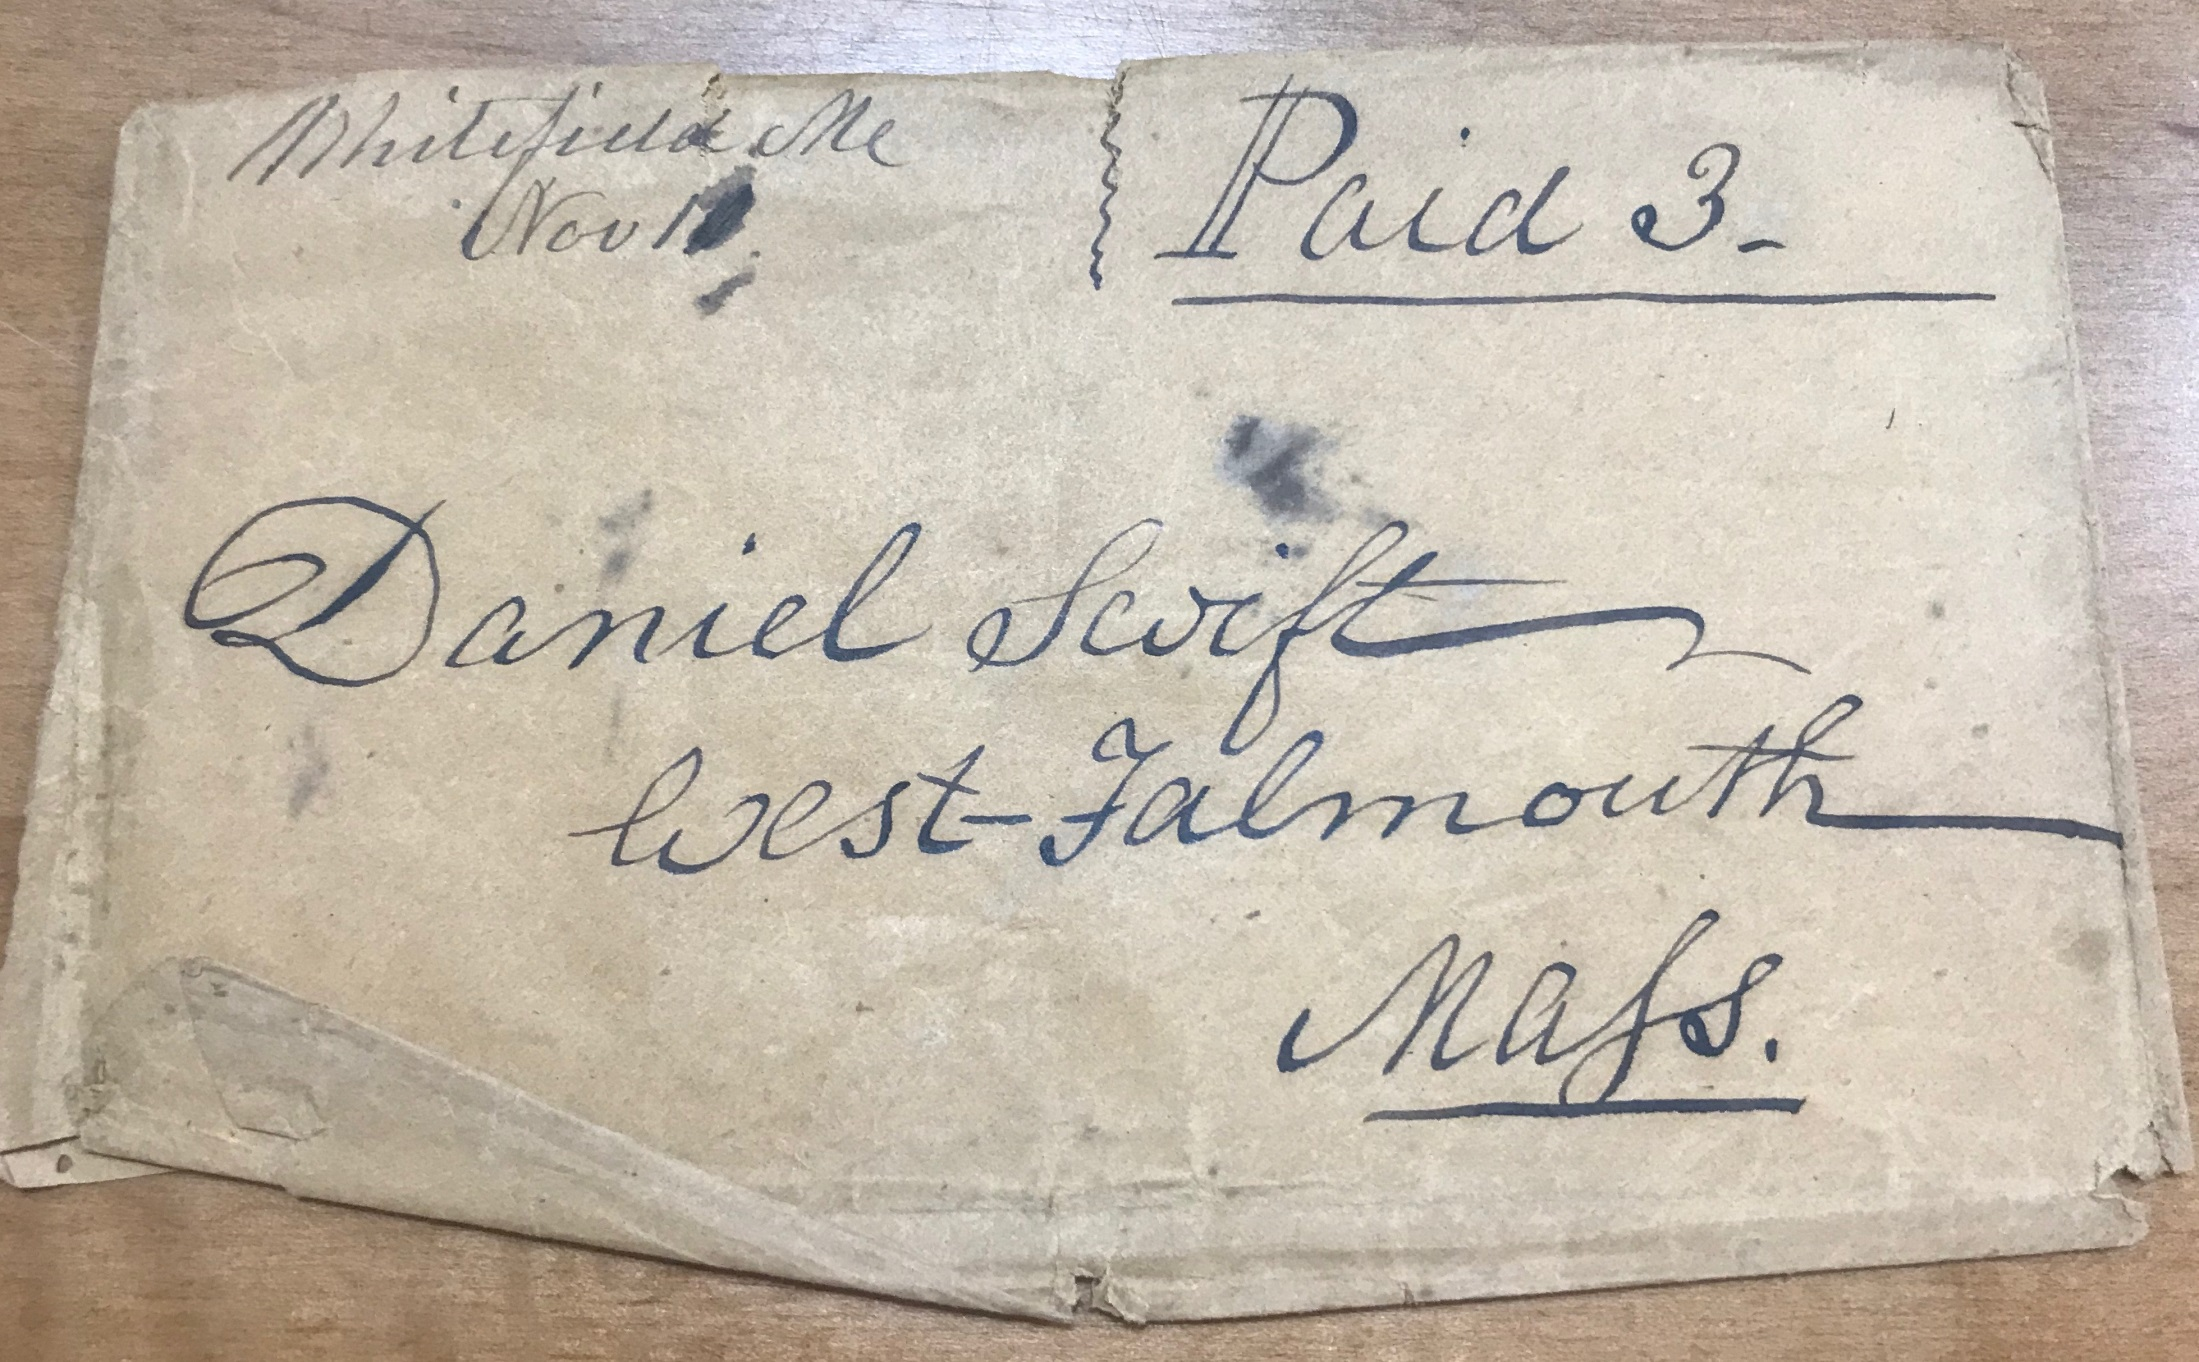 Whitefield Me
Nov
Paid 3-
Daniel Swift
West-Falmouth
Maſs.